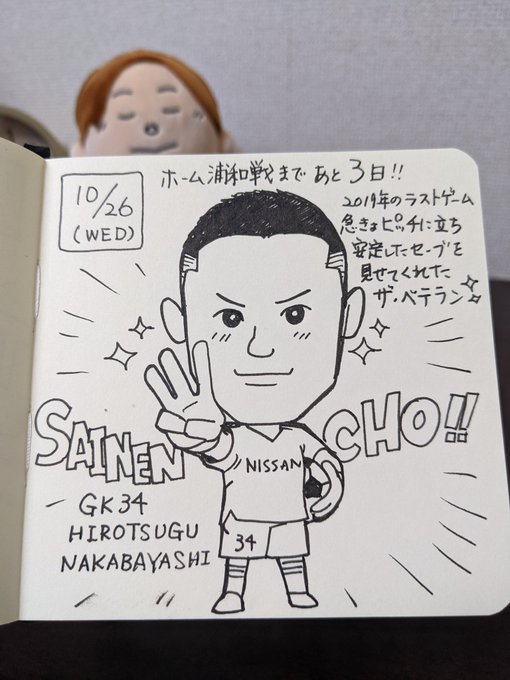 10/26
(WED)
ホーム浦和戦まであと3日!!
2019年のラストゲーム
急きょピッチに立ち
安定したセーブを
見せてくれた
ザ・ベテラン
SAINEN CHO!!
NISSAN
34
GK34
HIROTSUGU
NAKABAYASHI